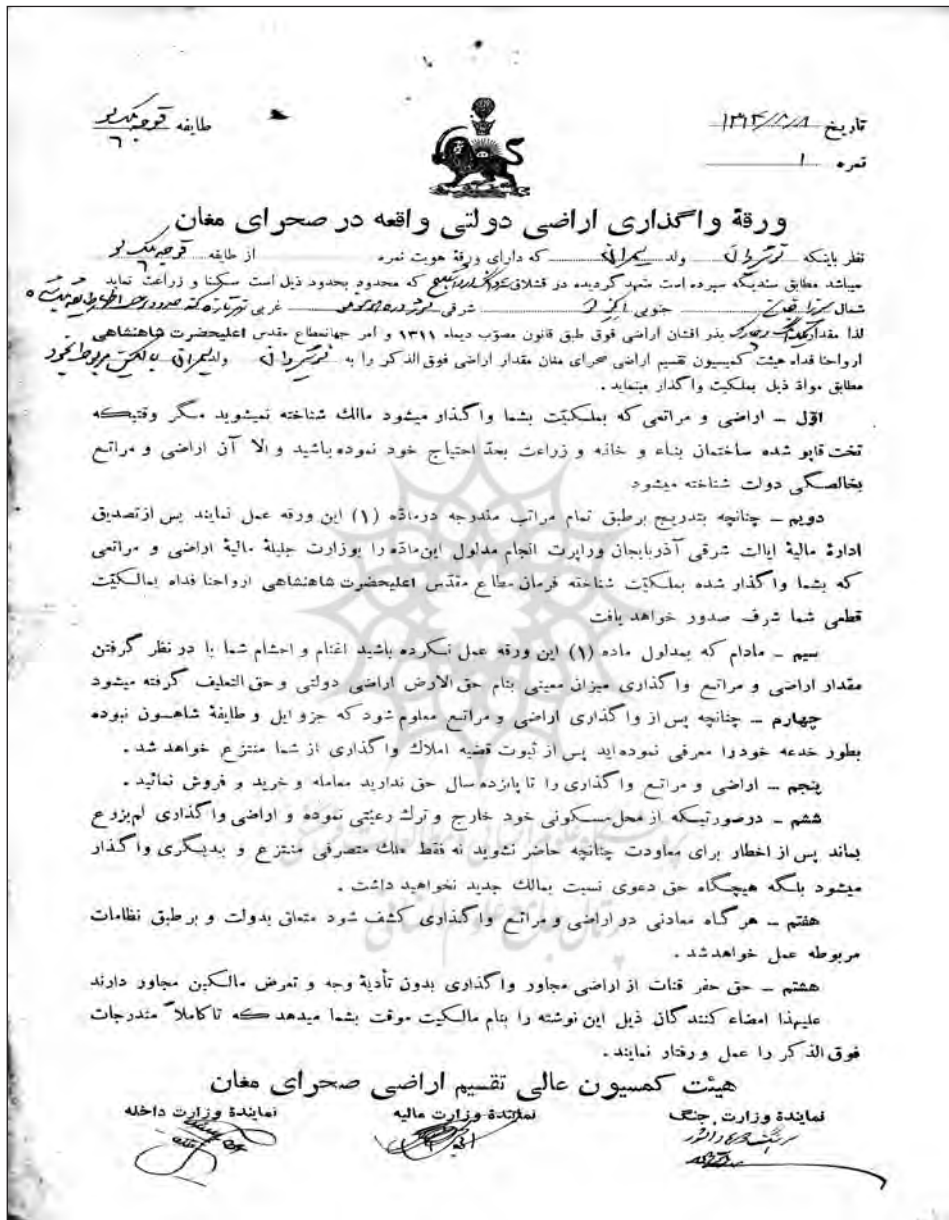 تاریخ ۱۳۱۴/۸/۸
طایفه قوجه بیک لو
نمره ۱
ورقهٔ واگذاری اراضی دولتی واقعه در صحرای مغان
نظر باینکه نوشیروان ولد که دارای ورقهٔ هویت نمره از طایفه قوجه بیک لو
میباشد مطابق سندیکه سپرده است متعهد گردیده در قشلاق که محدود بحدود ذیل است سکنا و زراعت نماید
شمال جنوبی شرقی غربی
لذا مقدار بذر افشان اراضی فوق طبق قانون مصوّب دیماه ۱۳۱۱ و امر جهانمطاع مقدس اعلیحضرت شاهنشاهی
ارواحنا فداه هیئت کمیسیون تقسیم اراضی صحرای مغان مقدار اراضی فوق الذکر را به نوشیروان ولد
مطابق موادّ ذیل بملکیت واگذار مینماید .
اوّل – اراضی و مراتعی که بملکیّت بشما واگذار میشود مالك شناخته نمیشوید مگر وقتیکه
تخت قاپو شده ساختمان بناء و خانه و زراعت بحدّ احتیاج خود نموده باشید و الا آن اراضی و مراتع
بخالصگی دولت شناخته میشود
دویم – چنانچه بتدریج برطبق تمام مراتب مندرجه درمادّه (۱) این ورقه عمل نمایند پس از تصدیق
ادارهٔ مالیهٔ ایالت شرقی آذربایجان وراپرت انجام مدلول این مادّه را بوزارت جلیلهٔ مالیهٔ اراضی و مراتعی
که بشما واگذار شده بملکیّت شناخته فرمان مطاع مقدّس اعلیحضرت شاهنشاهی ارواحنا فداه بمالکیّت
قطعی شما شرف صدور خواهد یافت
سیم – مادام که بمدلول ماده (۱) این ورقه عمل نکرده باشید اغنام و احشام شما با در نظر گرفتن
مقدار اراضی و مراتع واگذاری میزان معینی بنام حق الارض اراضی دولتی و حق التعلیف گرفته میشود
چهارم – چنانچه پس از واگذاری اراضی و مراتع معلوم شود که جزو ایل و طایفهٔ شاهسون نبوده
بطور خدعه خودرا معرفی نموده اید پس از ثبوت قضیه املاك واگذاری از شما منتزع خواهد شد .
پنجم – اراضی و مراتع واگذاری را تا پانزده سال حق ندارید معامله و خرید و فروش نمائید .
ششم – درصورتیکه از محل مسکونی خود خارج و ترك رعیّتی نموده و اراضی واگذاری لم یزرع
بماند پس از اخطار برای معاودت چنانچه حاضر نشوید نه فقط ملك متصرفی منتزع و بدیگری واگذار
میشود بلکه هیچگاه حق دعوی نسبت بمالك جدید نخواهید داشت .
هفتم – هرگاه معادنی در اراضی و مراتع واگذاری کشف شود متعلق بدولت و برطبق نظامات
مربوطه عمل خواهدشد .
هشتم – حق حفر قنات از اراضی مجاور واگذاری بدون تأدیهٔ وجه و تعرض مالکین مجاور دارند
علیهذا امضاء کنندگان ذیل این نوشته را بنام مالکیت موقت بشما میدهد که تا کاملاً مندرجات
فوق الذکر را عمل و رفتار نمایند .
هیئت کمسیون عالی تقسیم اراضی صحرای مغان
نمایندهٔ وزارت جنگ
نمایندهٔ وزارت مالیه
نمایندهٔ وزارت داخله